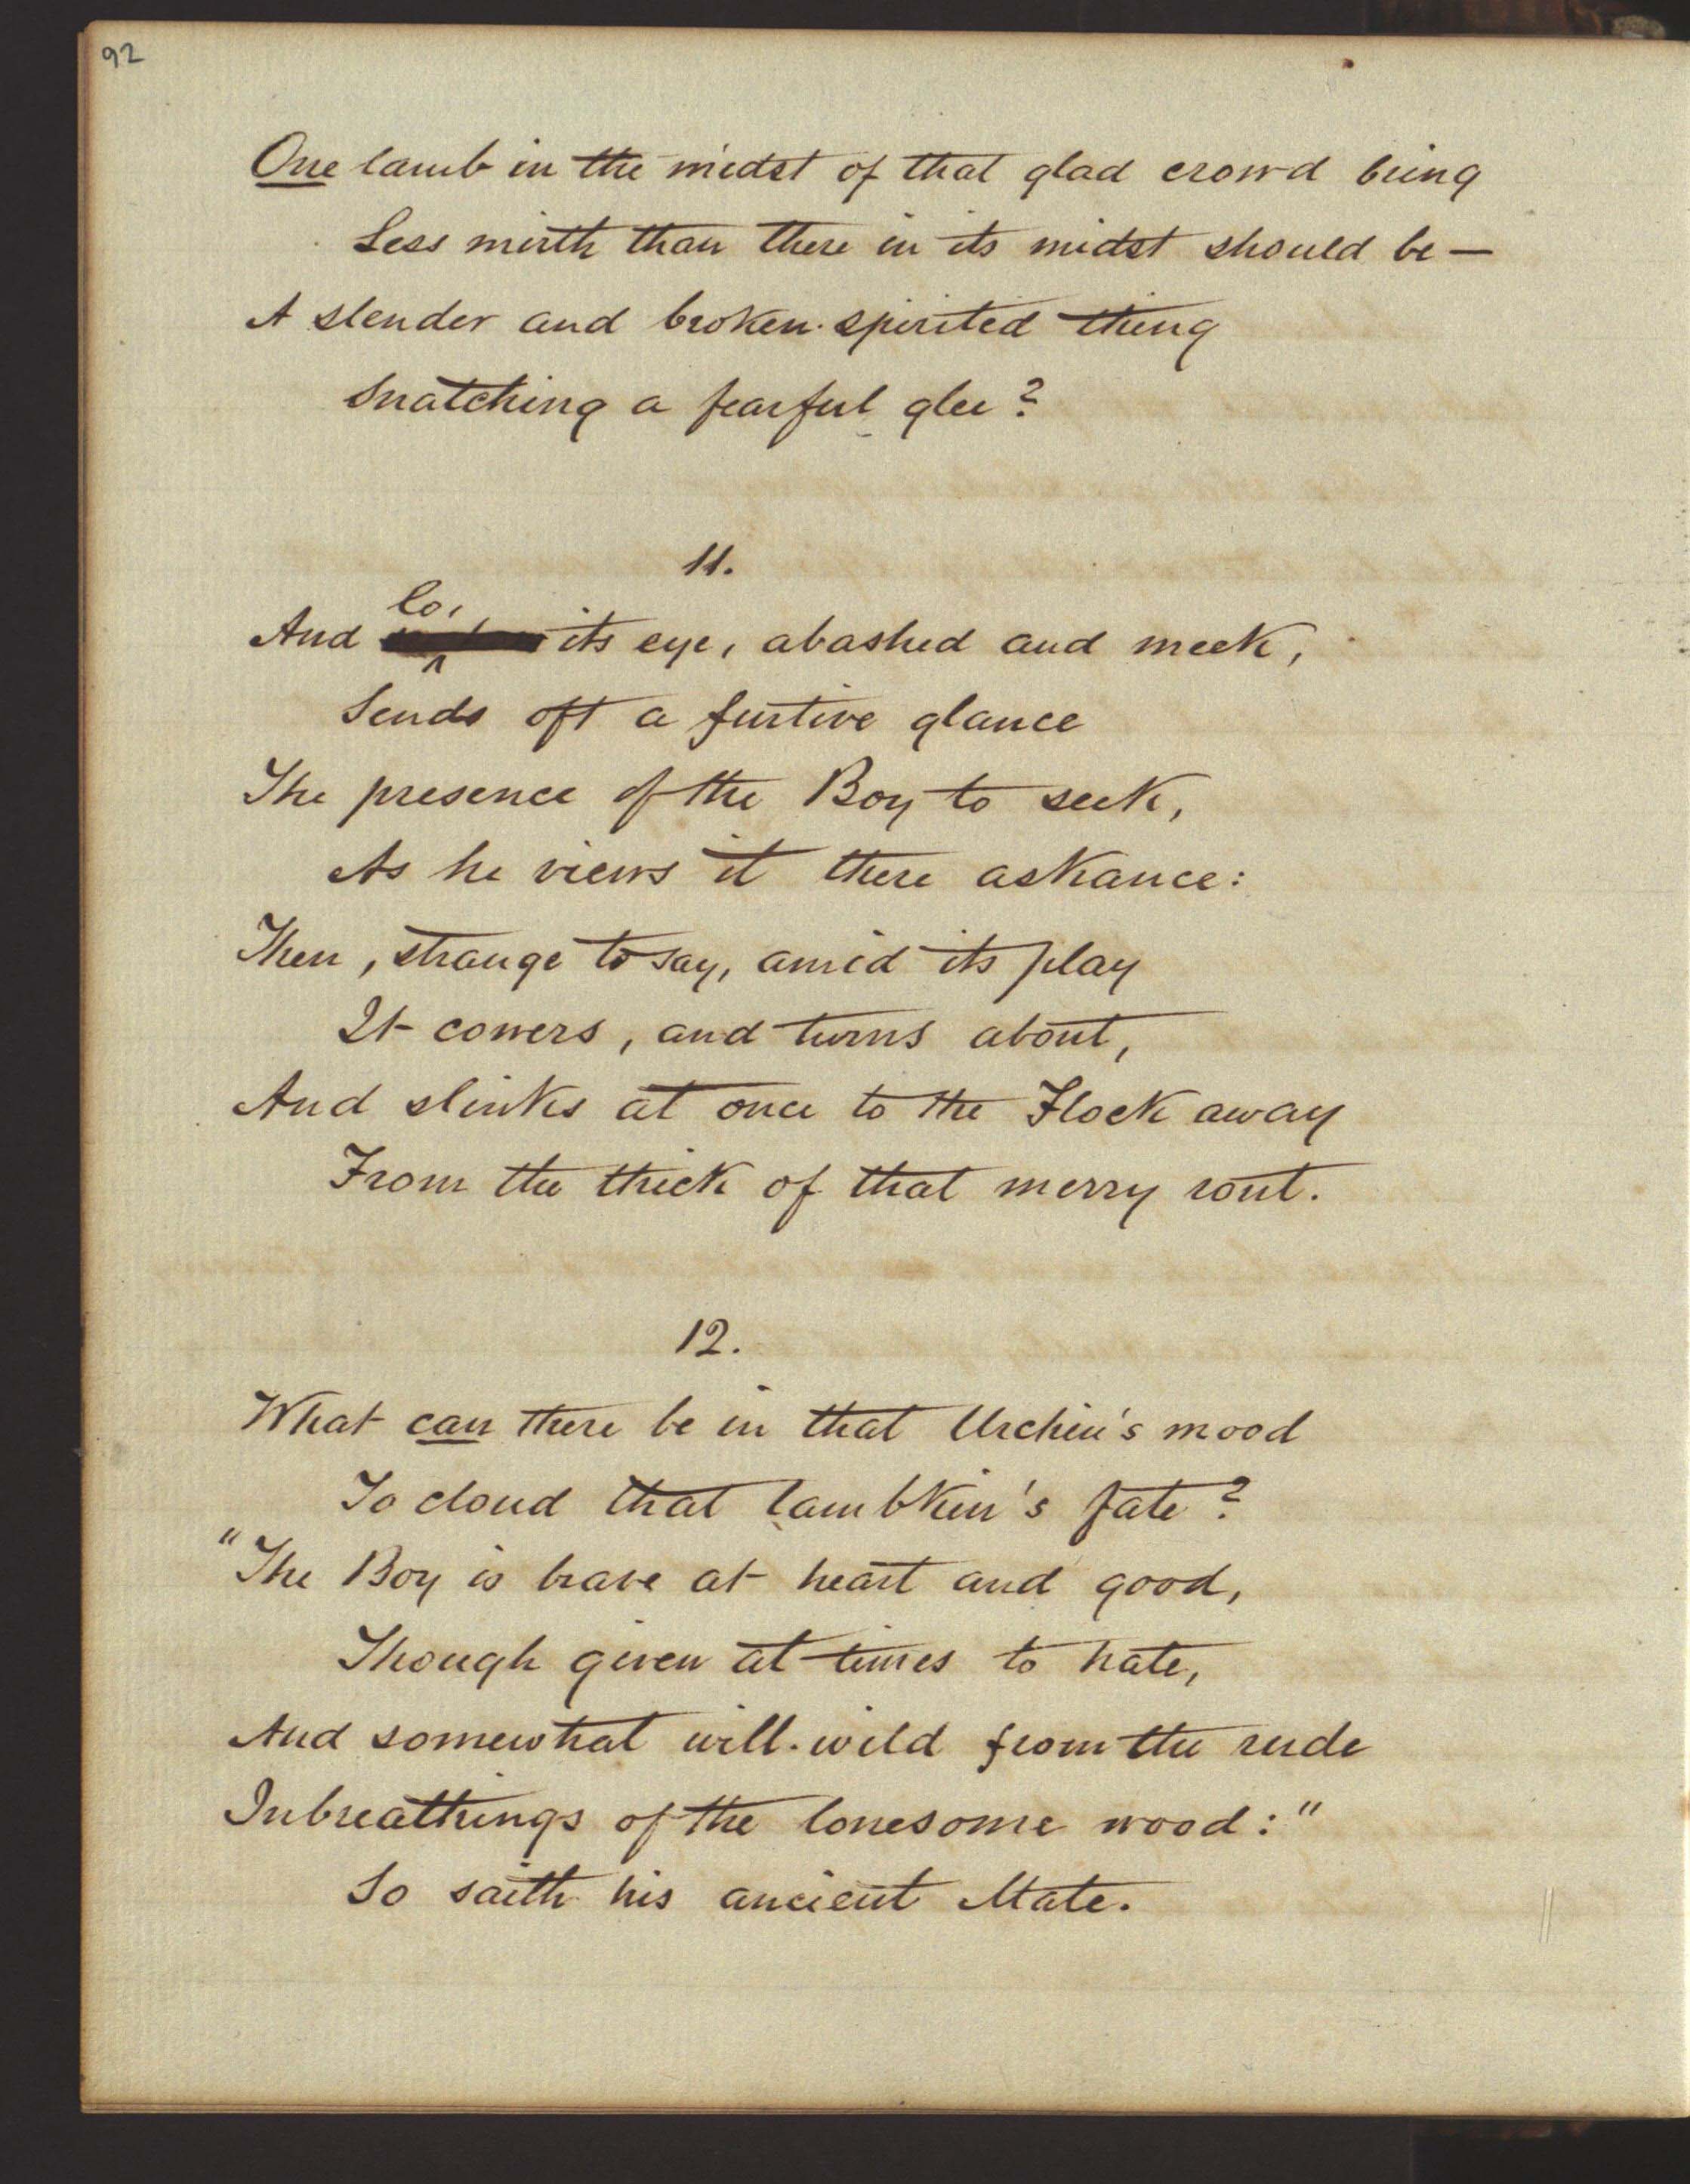 92
One lamb in the midst of that glad crowd being
Less mirth than there in its midst should be —
A slender and broken-spirited thing
Snatching a fearful glee?
11.
And lo, its eye, abashed and meek,
Sends oft a furtive glance
The presence of the Boy to seek,
As he views it there askance:
Then, strange to say, amid its play
It cowers, and turns about,
And slinks at once to the Flock away
From the thick of that merry rout.
12.
What can there be in that Urchin's mood
To cloud that lambkin's fate?
"The Boy is brave at heart and good,
Though given at times to hate,
And somewhat will-wild from the rude
Inbreathings of the lonesome wood:"
So saith his ancient Mate.